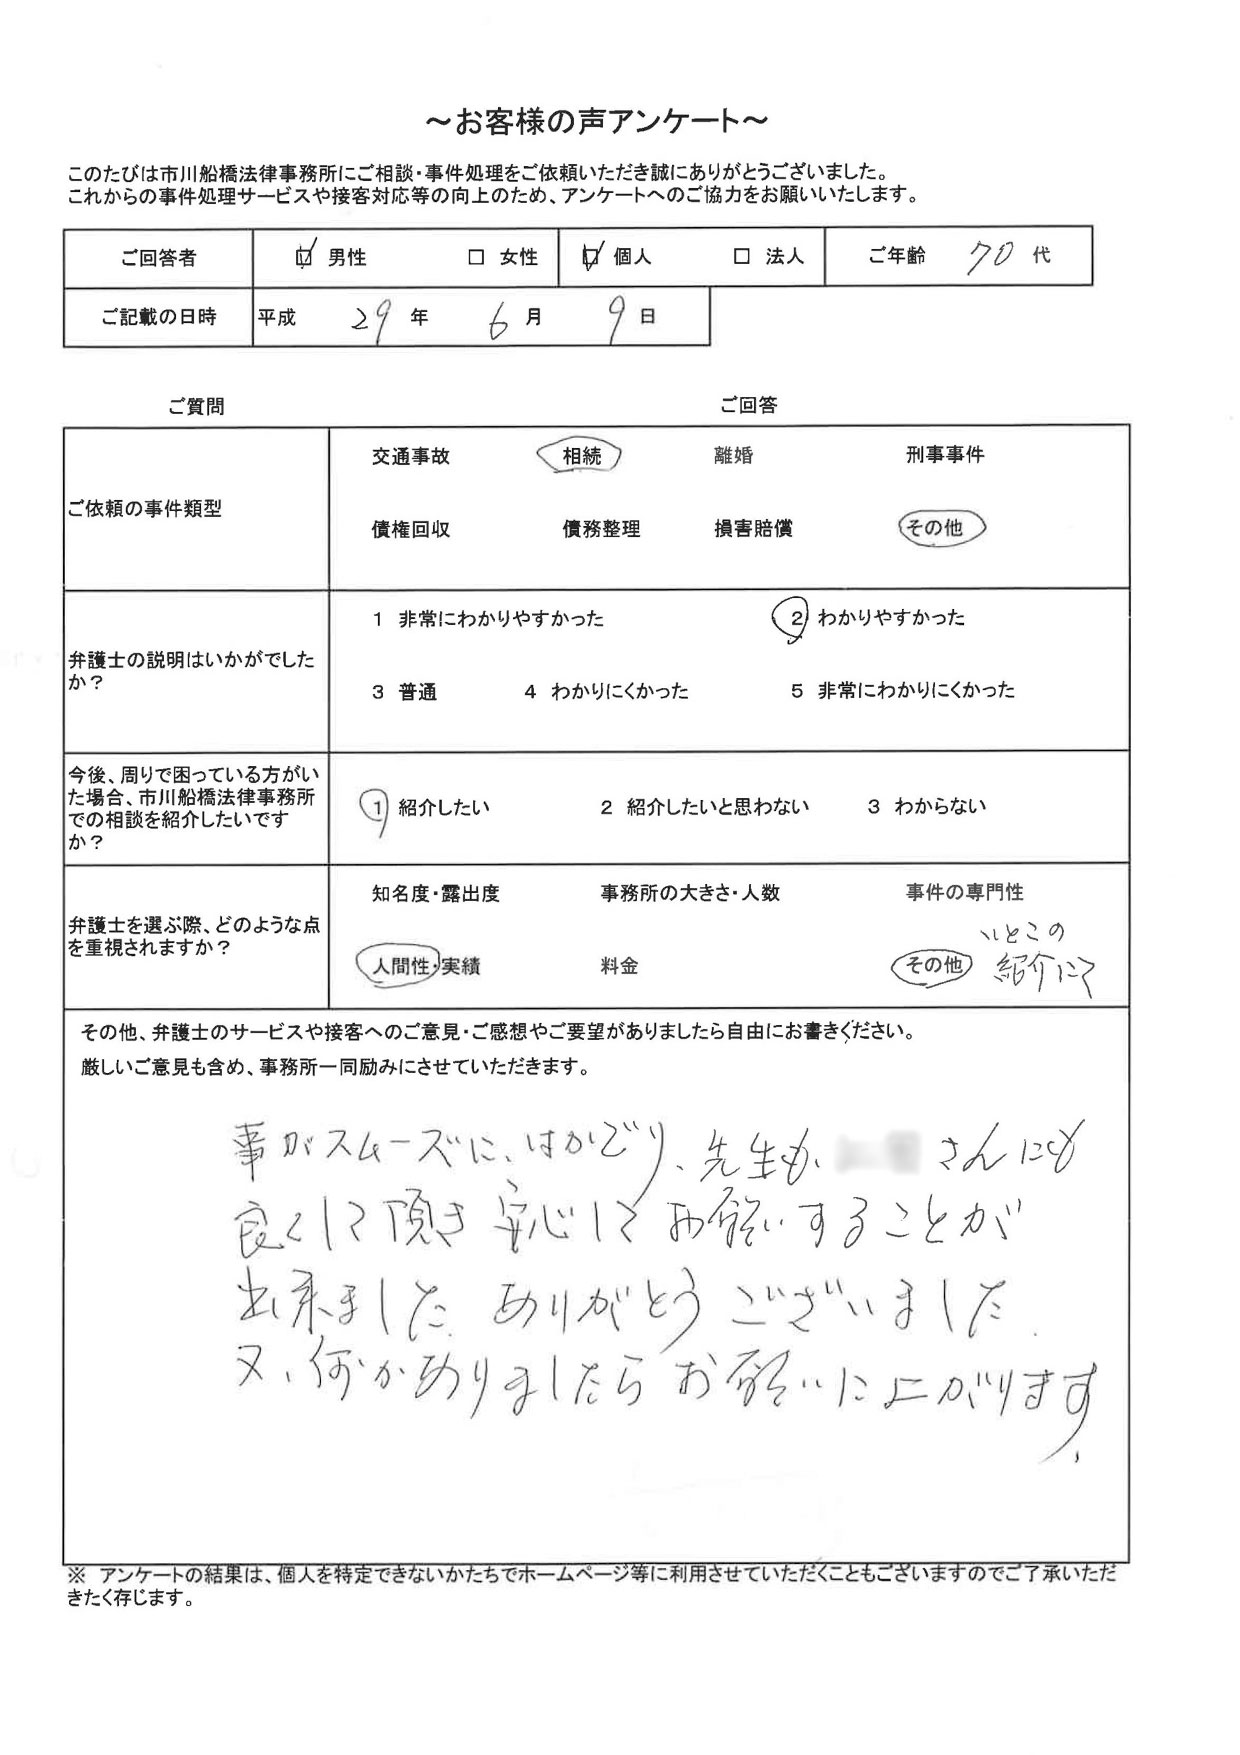 ～お客様の声アンケート～
このたびは市川船橋法律事務所にご相談・事件処理をご依頼いただき誠にありがとうございました。
これからの事件処理サービスや接客対応等の向上のため、アンケートへのご協力をお願いいたします。
ご回答者 ☑ 男性 □ 女性 ☑ 個人 □ 法人 ご年齢 70 代
ご記載の日時 平成 29 年 6 月 9 日
ご質問 ご回答
ご依頼の事件類型
交通事故 相続 離婚 刑事事件
債権回収 債務整理 損害賠償 その他
弁護士の説明はいかがでした
か？
1 非常にわかりやすかった 2 わかりやすかった
3 普通 4 わかりにくかった 5 非常にわかりにくかった
今後、周りで困っている方がい
た場合、市川船橋法律事務所
での相談を紹介したいです
か？
1 紹介したい 2 紹介したいと思わない 3 わからない
弁護士を選ぶ際、どのような点
を重視されますか？
知名度・露出度 事務所の大きさ・人数 事件の専門性
人間性・実績 料金 その他
いとこの
紹介にて
その他、弁護士のサービスや接客へのご意見・ご感想やご要望がありましたら自由にお書きください。
厳しいご意見も含め、事務所一同励みにさせていただきます。
事がスムーズに、はかどり、先生も、 さんにも
良くして頂き安心してお願いすることが
出来ました。ありがとうございました。
又、何かありましたらお願いに上がります、
※ アンケートの結果は、個人を特定できないかたちでホームページ等に利用させていただくこともございますのでご了承いただ
きたく存じます。